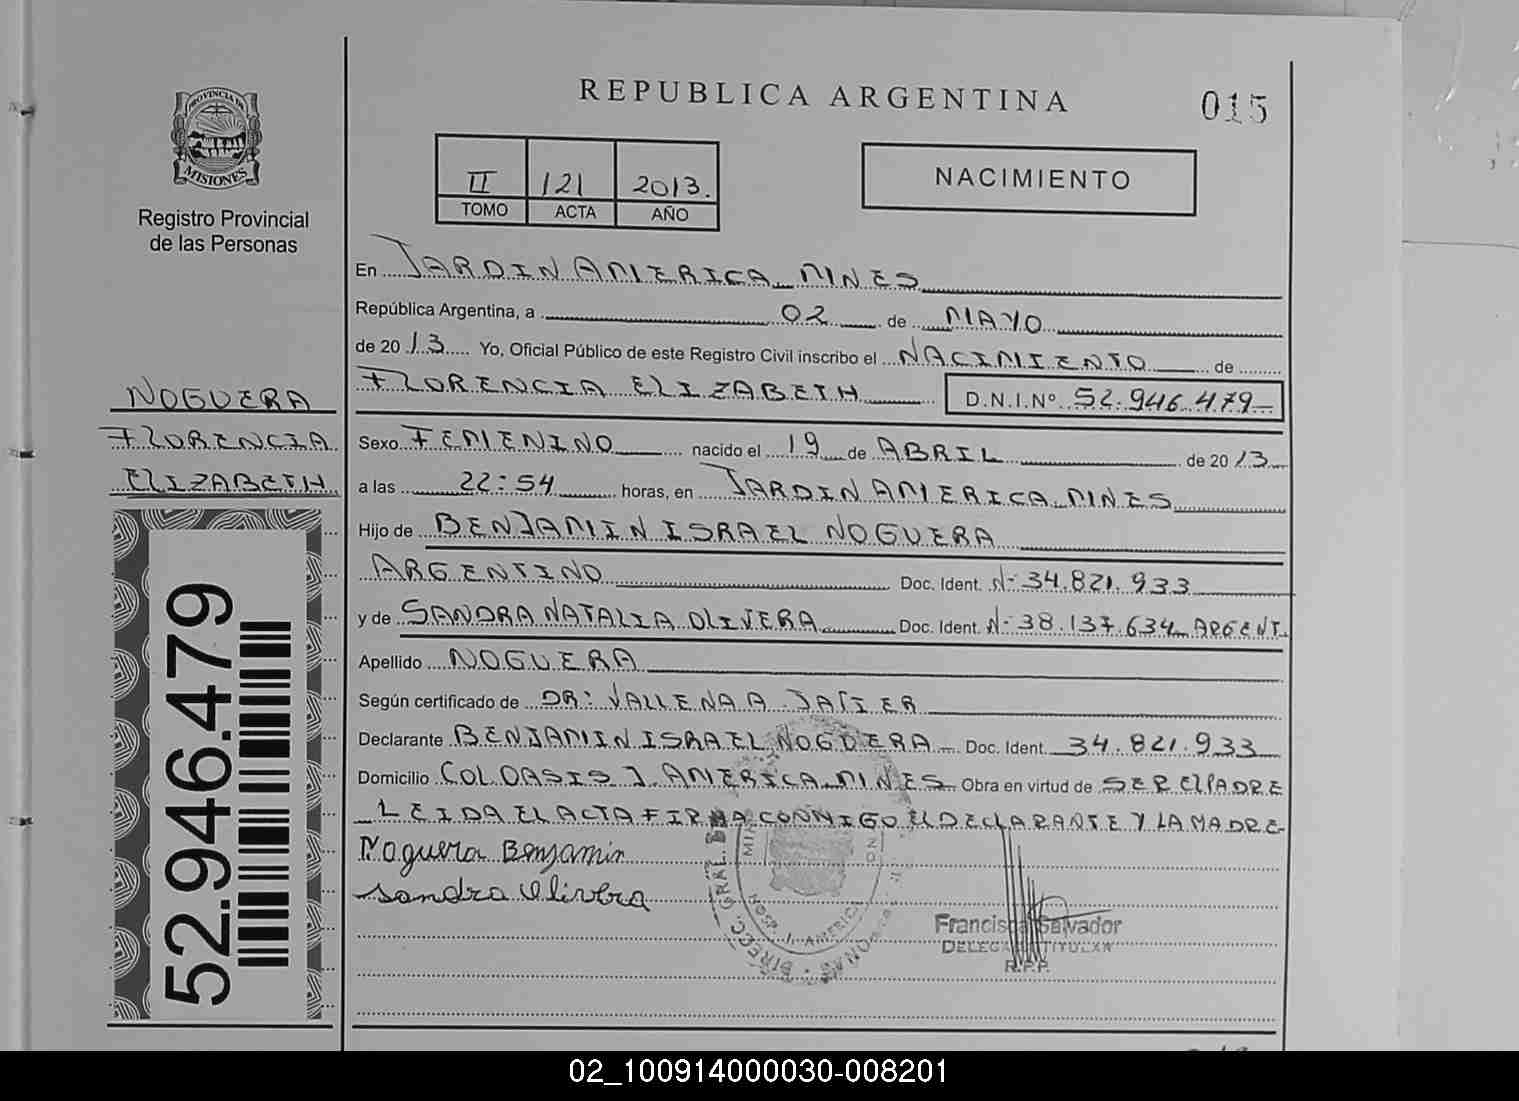 REPUBLICA ARGENTINA
015
PROVINCIA DE
MISIONES
Registro Provincial
de las Personas
II 121 2013.
TOMO ACTA AÑO
NACIMIENTO
En JARDIN AMERICA MNES
República Argentina, a 02 de MAYO
de 2013 Yo, Oficial Público de este Registro Civil inscribo el NACIMIENTO de
FLORENCIA ELIZABETH D.N.I.Nº 52.946.479
NOGUERA
FLORENCIA
ELIZABETH
Sexo FEMENINO nacido el 19 de ABRIL de 2013
a las 22:54 horas, en JARDIN AMERICA MNES
Hijo de BENJAMIN ISRAEL NOGUERA
ARGENTINO Doc. Ident. Nº 34.821.933
y de SANDRA NATALIA OLIVERA Doc. Ident. Nº 38.137.634 ARGENT.
Apellido NOGUERA
Según certificado de DR: VALLENA A JAVIER
Declarante BENJAMIN ISRAEL NOGUERA Doc. Ident. 34.821.933
Domicilio COL OASIS J. AMERICA MNES Obra en virtud de SER EL PADRE
LEIDA EL ACTA FIRMA CONMIGO EL DECLARANTE Y LA MADRE
Noguera Benjamin
Sandra Olivera
DIRECC. GRAL. HOSP. J. AMERICA
Francisca Salvador
DELEGADA TITULAR
R.P.P.
52.946.479
02_100914000030-008201